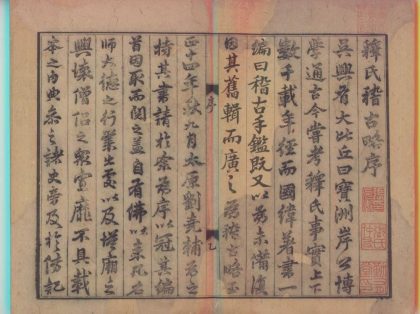 釋氏稽古略序
吳興有大比丘曰寶洲岸公博
學通古今嘗考釋氏事實上下
數千載年經而國緯著書一
編曰稽古手鑑既又以為未備復
因其舊輯而廣之為稽古略至
正十四年秋九月太原劉堯輔為之
特其書請於余為序以冠其編
首因取而閱之蓋自有佛以來凡名
師大德之行業出處以及塔廟之
興壞僧侶之眾寡靡不具載
本之內典參之諸史旁及於傳記
序